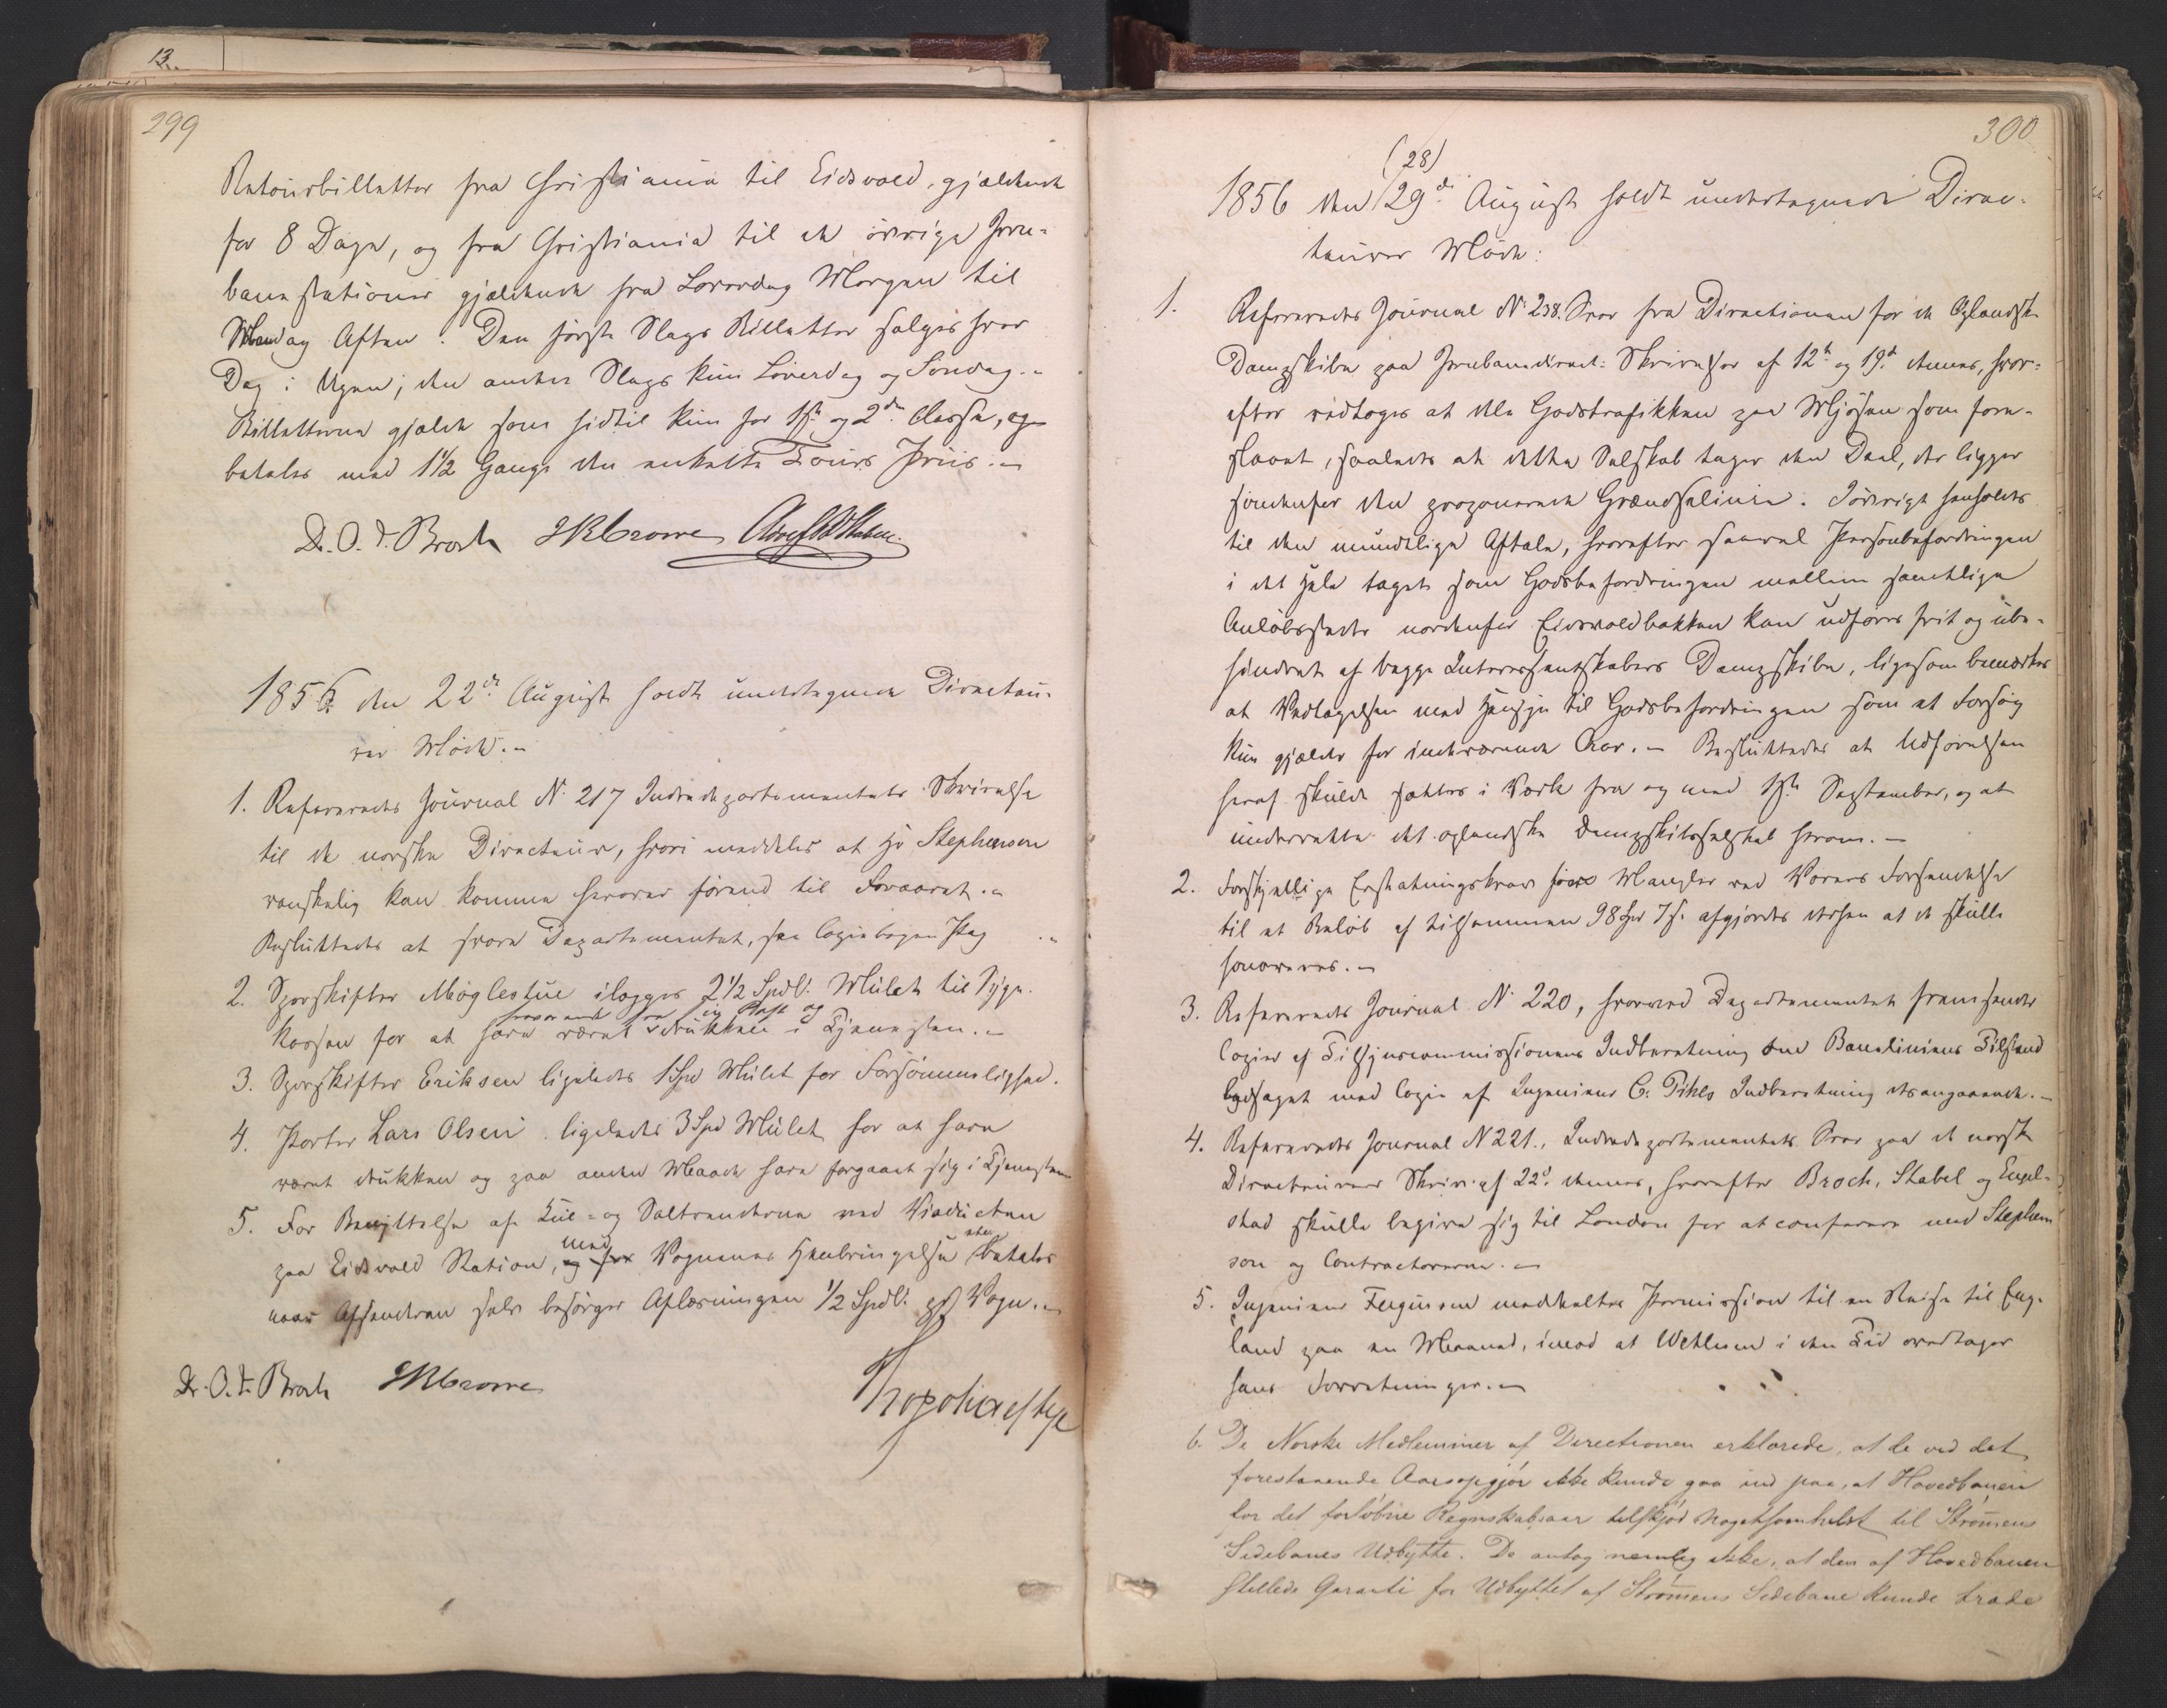 13.
299
Retourbilletter fra Christiania til Eidsvold, gjældende
for 8 Dage, og fra Christiania til de övrige Jern-
banestationer gjældende fra Löverdag Morgen til
Mandag Aften. Den förste Slags Billetter sælges hver
Dag i Ugen; den anden Slags kun Löverdag og Söndag.-
Billetterne gjælde som hidtil kun for 1ste og 2den Classe, og
betales med 1½ Gange den enkelte Tours Priis.-
Dr. O. J. Broch JRCrowe
1856 den 22de August holdt undertegnede Directeu-
rer Möde.-
1. Refereredes Journal N. 217 Indredepartementets Skrivelse
til de norske Directeurer, hvori meddeles at Hr Stephenson
vanskelig kan komme herover förend til Foraaret.-
Besluttedes at svare Departementet, see Copiebogen Pag .-
2. Sporskifter Moglestue ilægges 2½ Spdl: Mulct til Syge-
kassen for at have været drukken i Tjenesten.-
3. Sporskifter Eriksen ligeledes 1 Spd Mulct for Forsömmelighed.
4. Porter Lars Olsen ligeledes 3 Spd Mulct for at have
været drukken og paa anden Maade have forgaaet sig i Tjenesten
5. For Benyttelse af Kul- og Saltrenderne ved Viaducten
med uden
paa Eidsvold Station, og for Vognenes Henbringelse betales
naar Afsenderen selv besörger Aflæsningen ½ Spdl: pr Vogn.-
Dr. O. J. Broch JRCrowe
300
(28)
1856 den 29de August holdt undertegnede Direc-
teurer Möde:
1. Refereredes Journal N. 238. Svar fra Directionen for de Oplandske
Dampskibe paa Jernbanedirect: Skrivelser af 12te og 19de dennes, hvor-
efter vedtoges at dele Godstrafikken paa Mjösen som fore-
slaaet, saaledes at dette Selskab tager den Deel, der ligger
söndenfor den proponerede Grændselinie. Iövrigt henholdes
til den mundtlige Aftale, hvorefter saavel Personbefordringen
i det Hele taget som Godsbefordringen mellem samtlige
Anlöbssteder nordenfor Eidsvoldbakken kan udföres frit og ube-
hindret af begge Interessentskabers Dampskibe, ligesom bemærkes
at Vedtagelsen med Hensyn til Godsbefordringen som et Forsög
kun gjælder for indeværende Aar.- Besluttedes at Udförelsen
heraf skulde sættes i Værk fra og med 1ste September, og at
underrette det oplandske Dampskibsselskab herom.-
2. Forskjellige Erstatningskrav for Mangler ved Varers Forsendelse
til et Belöb af tilsammen 98 Spd 7 s. afgjordes derhen at de skulle
honoreres.-
3. Refereredes Journal N. 220, hvorved Departementet fremsender
Copier af Tilsynscommissionens Indberetning om Baneliniens Tilstand
ledsaget med Copie af Ingenieur C. Pihls Indberetning desangaaende.-
4. Refereredes Journal N 221., Indredepartementets Svar paa de norske
Directeurers Skriv: af 22de dennes, hvorefter Broch, Stabel og Engel-
stad skulle begive sig til London for at conferere med Stephen
son og Contractorerne.-
5. Ingenieur Ferguson meddeeltes Permission til en Reise til Eng-
land paa en Maaned, imod at Wetlesen i den Tid overtager
hans Forretninger.-
6. De Norske Medlemmer af Directionen erklærede, at de ved det
forestaaende Aarsopgjör ikke kunde gaa ind paa, at Hovedbanen
for det forlöbne Regnskabsaar tilskjöd Nogetsomhelst til Strömens
Sidebanes Udbytte. De antog nemlig ikke, at den af Hovedbanen
stillede Garanti for Udbyttet af Strömens Sidebane kunde træde